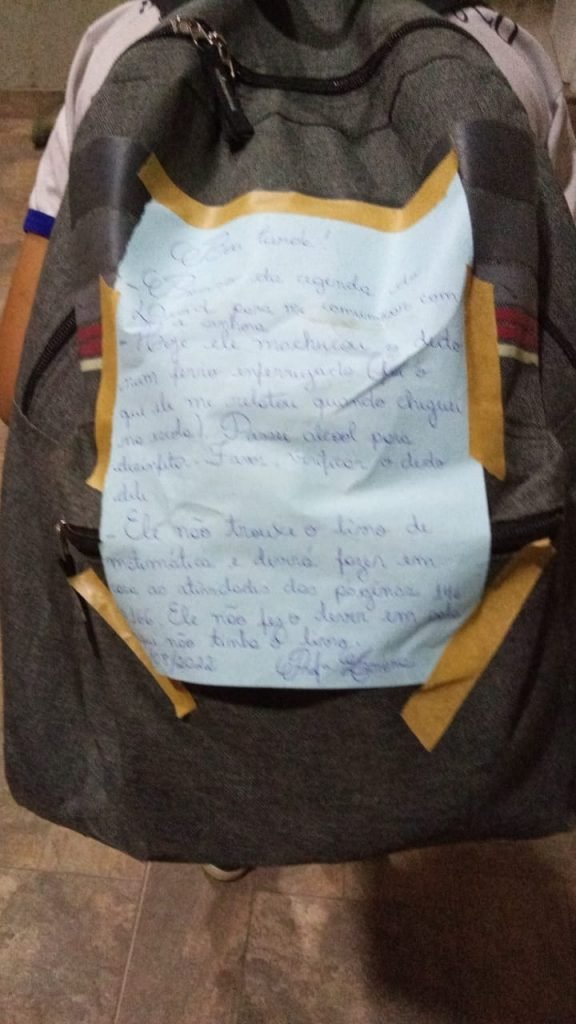 Boa tarde!
- da agenda do
para me comunicar com
a senhora
- Hoje ele machucou o dedo
num ferro enferrujado (foi o
que ele me relatou quando cheguei
na sala). Passei álcool para
desinfetar. Favor, verificar o dedo
dele.
- Ele não trouxe o livro de
matemática e deverá fazer em
casa as atividades das páginas
Ele não fez o dever em sala
não tinha o livro.
/2022 Profa